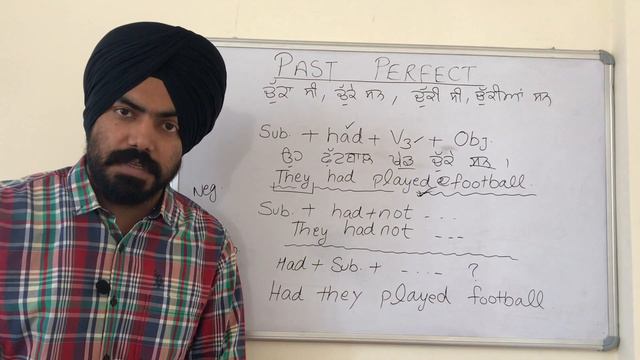 PAST PERFECT
ਚੁੱਕਾ ਸੀ, ਚੁੱਕੇ ਸਨ, ਚੁੱਕੀ ਸੀ, ਚੁੱਕੀਆਂ ਸਨ
Sub. + had + V3 + Obj.
ਉਹ ਫੁੱਟਬਾਲ ਖੇਡ ਚੁੱਕੇ ਸਨ।
They had played football.
Neg.
Sub. + had + not ...
They had not ---
Had + Sub. + ---- ?
Had they played football